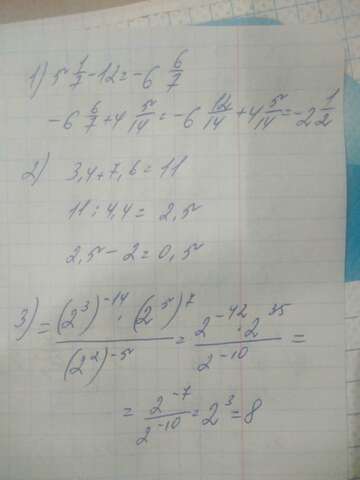 1) 5 1/7 - 12 = -6 6/7
-6 6/7 + 4 5/14 = -6 12/14 + 4 5/14 = -2 1/2
2) 3,4 + 7,6 = 11
11 : 4,4 = 2,5
2,5 - 2 = 0,5
3) = ((2^3)^-14 · (2^5)^7)/((2^2)^-5) = (2^-42 · 2^35)/(2^-10) =
= (2^-7)/(2^-10) = 2^3 = 8